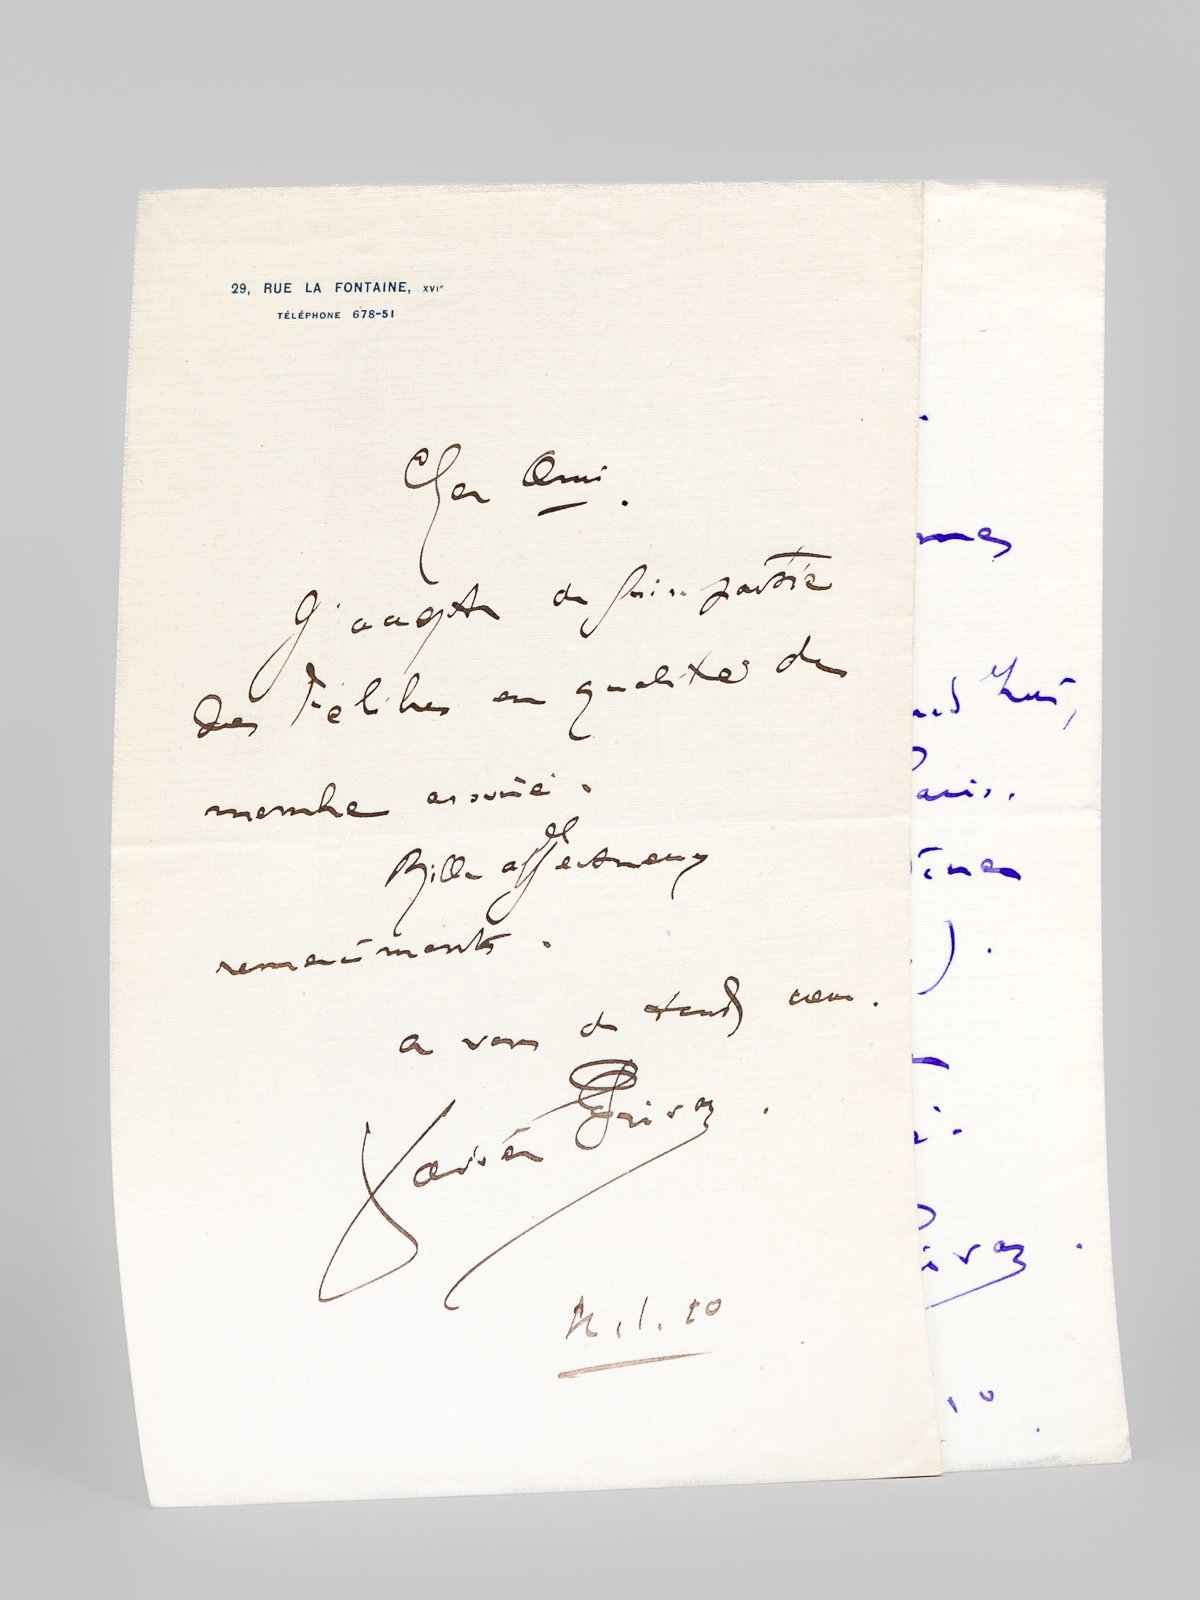 29, RUE LA FONTAINE, XVIe
TÉLÉPHONE 678-51
Cher Ami.
J'accepte de faire partie
des Félibres en qualité de
membre associé.
Mille affectueux
remerciments.
a vous de tout cœur.
Xavier Privas.
1.10
mes
d'hui,
Paris.
).
ivas.
10